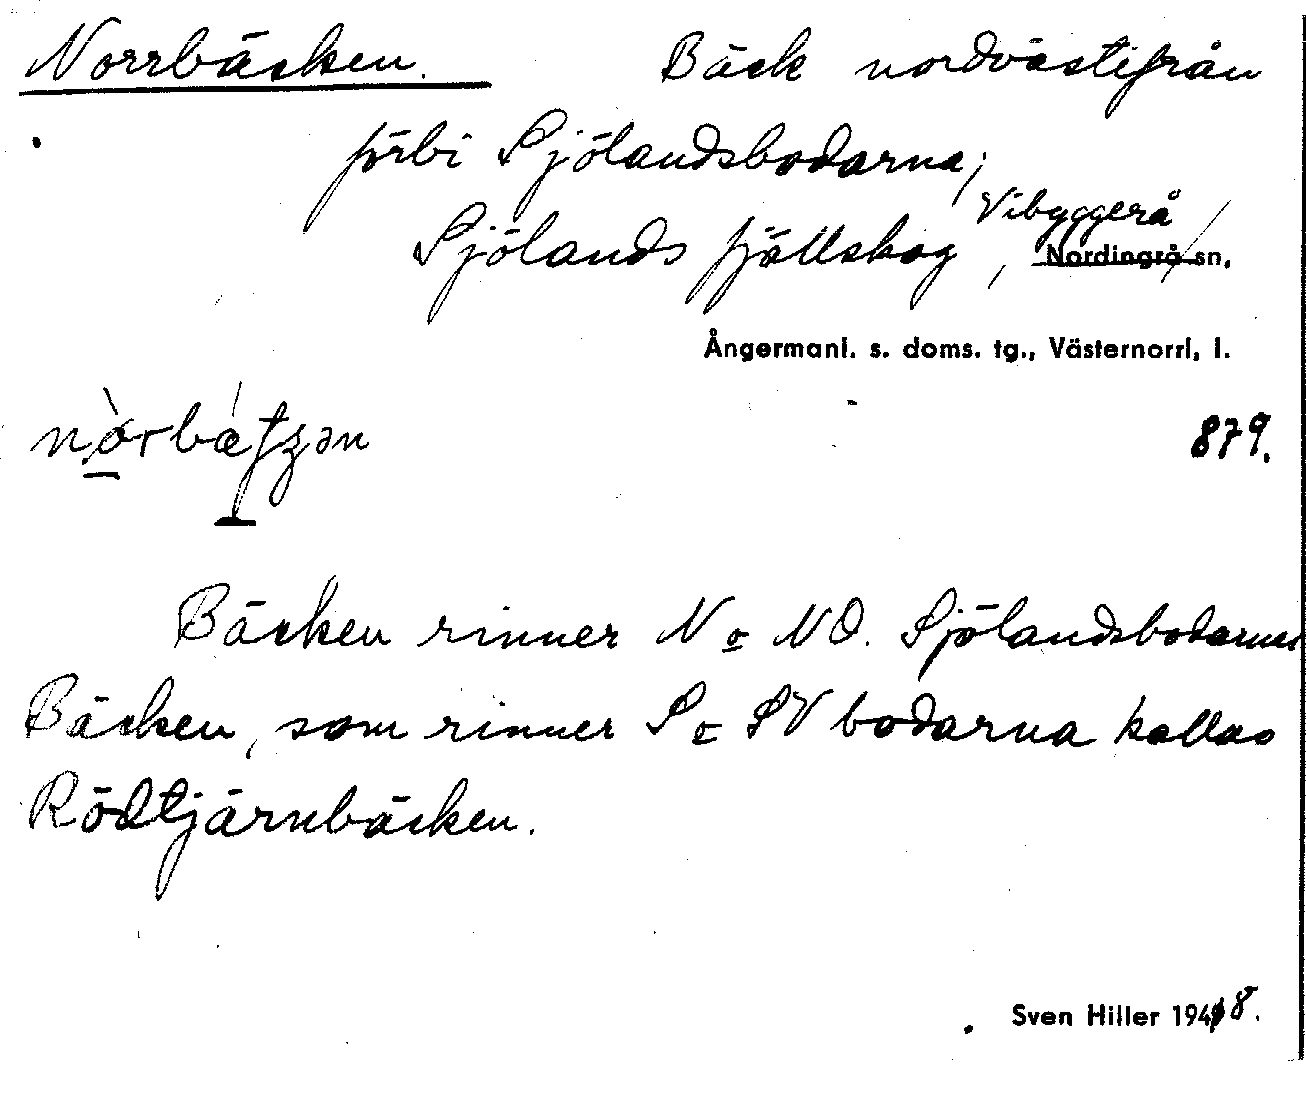 Norrbäcken. Bäck nordvästifrån
förbi Sjölandsbodarna;
Sjölands fjällskog, Vibyggerå
Nordingrå sn,
Ångermanl. s. doms. tg., Västernorrl, l.
879.
Bäcken rinner N o NO. Sjölandsbodarna
Bäcken, som rinner S o SV bodarna kallas
Rödtjärnbäcken.
Sven Hiller 1948.